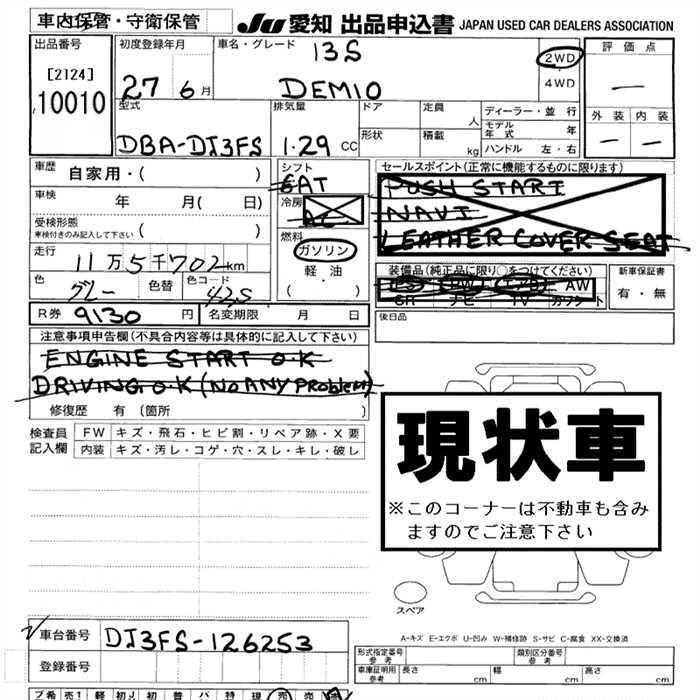 車内保管・守衛保管
JU 愛知 出品申込書 JAPAN USED CAR DEALERS ASSOCIATION
出品番号
[2124]
10010
初度登録年月
27 6月
車名・グレード
13S
DEMIO
2WD
4WD
評価点
—
外装 内装
— —
型式
DBA-DJ3FS
排気量
1.29 CC
ドア
形状
定員 人
積載 kg
ディーラー・並行
モデル年式 年
ハンドル 左・右
車歴 自家用・( )
車検 年 月( 日)
受検形態
車検付きのみ記入して下さい ( )
走行 11万5千702km
色 グレー 色替 色コード 42S
シフト
6AT
冷房
AC
燃料
ガソリン
軽油
( ・ )
セールスポイント(正常に機能するものに限ります)
PUSH START
NAVI
LEATHER COVER SEAT
装備品(純正品に限り○をつけてください)
PS PW エアB AW
SR ナビ TV カワシート
新車保証書
有・無
R券 9130 円 名変期限 月 日
後日品
注意事項申告欄(不具合内容等は具体的に記入して下さい)
ENGINE START O.K
DRIVING O.K (NO ANY PROBLEM)
修復歴 有 (箇所 )
検査員記入欄
FW キズ・飛石・ヒビ割・リペア跡・X要
内装 キズ・汚レ・コゲ・穴・スレ・キレ・破レ
現状車
※このコーナーは不動車も含み
ますのでご注意下さい
スペア
A-キズ E-エクボ U-凹み W-補修跡 S-サビ C-腐食 XX-交換済
車台番号 DJ3FS-126253
登録番号
形式指定番号 参考
類別区分番号 参考
車庫証明用 参考 長さ cm 幅 cm 高さ cm